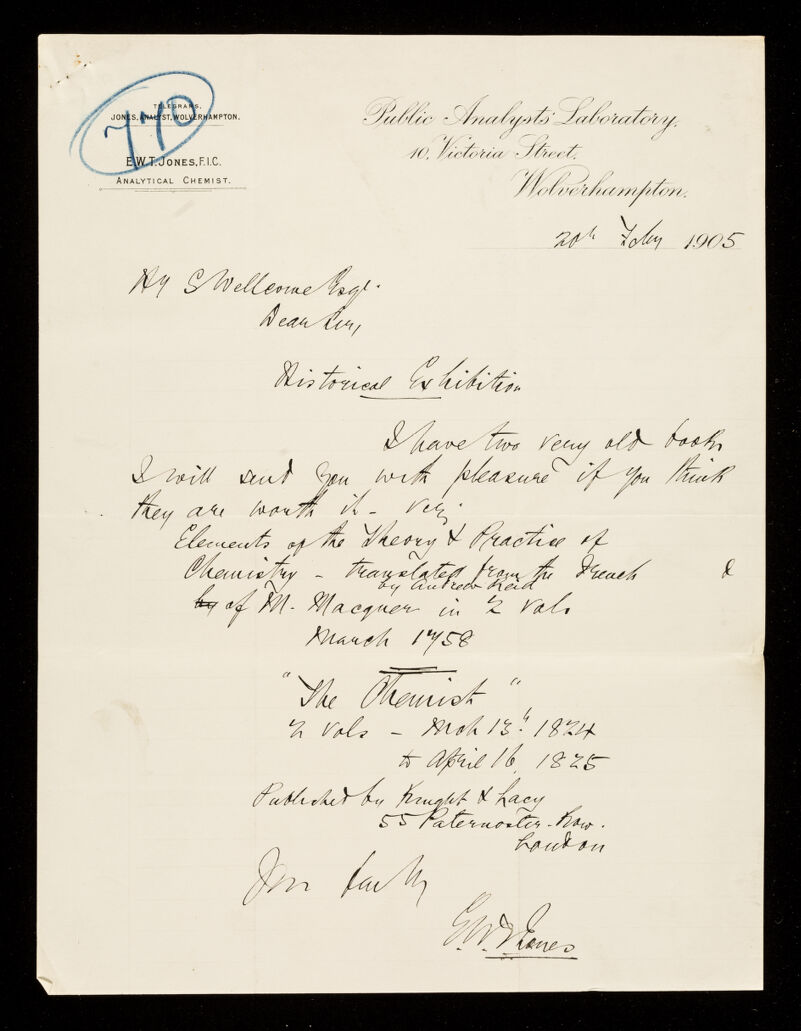 770
TELEGRAMS,
JONES, ANALYST, WOLVERHAMPTON.
E.W.T. JONES, F.I.C.
ANALYTICAL CHEMIST.
Public Analysts' Laboratory,
10, Victoria Street,
Wolverhampton.
20th Feby 1905
Hy S Wellcome Esqr.
Dear Sir,
Historical Exhibition
I have two very old books
I will send you with pleasure if you think
they are worth it - viz;
Elements of the Theory & Practise of
Chemistry - translated from the French &
by Andrew Reid
by of M. Macquer in 2 Vols
March 1758
"The Chemist"
2 Vols - Mch 13th 1824
to April 16, 1825
Published by Knight & Lacy
55 Paternoster-Row.
London
Yours faithfully
E.W.T. Jones